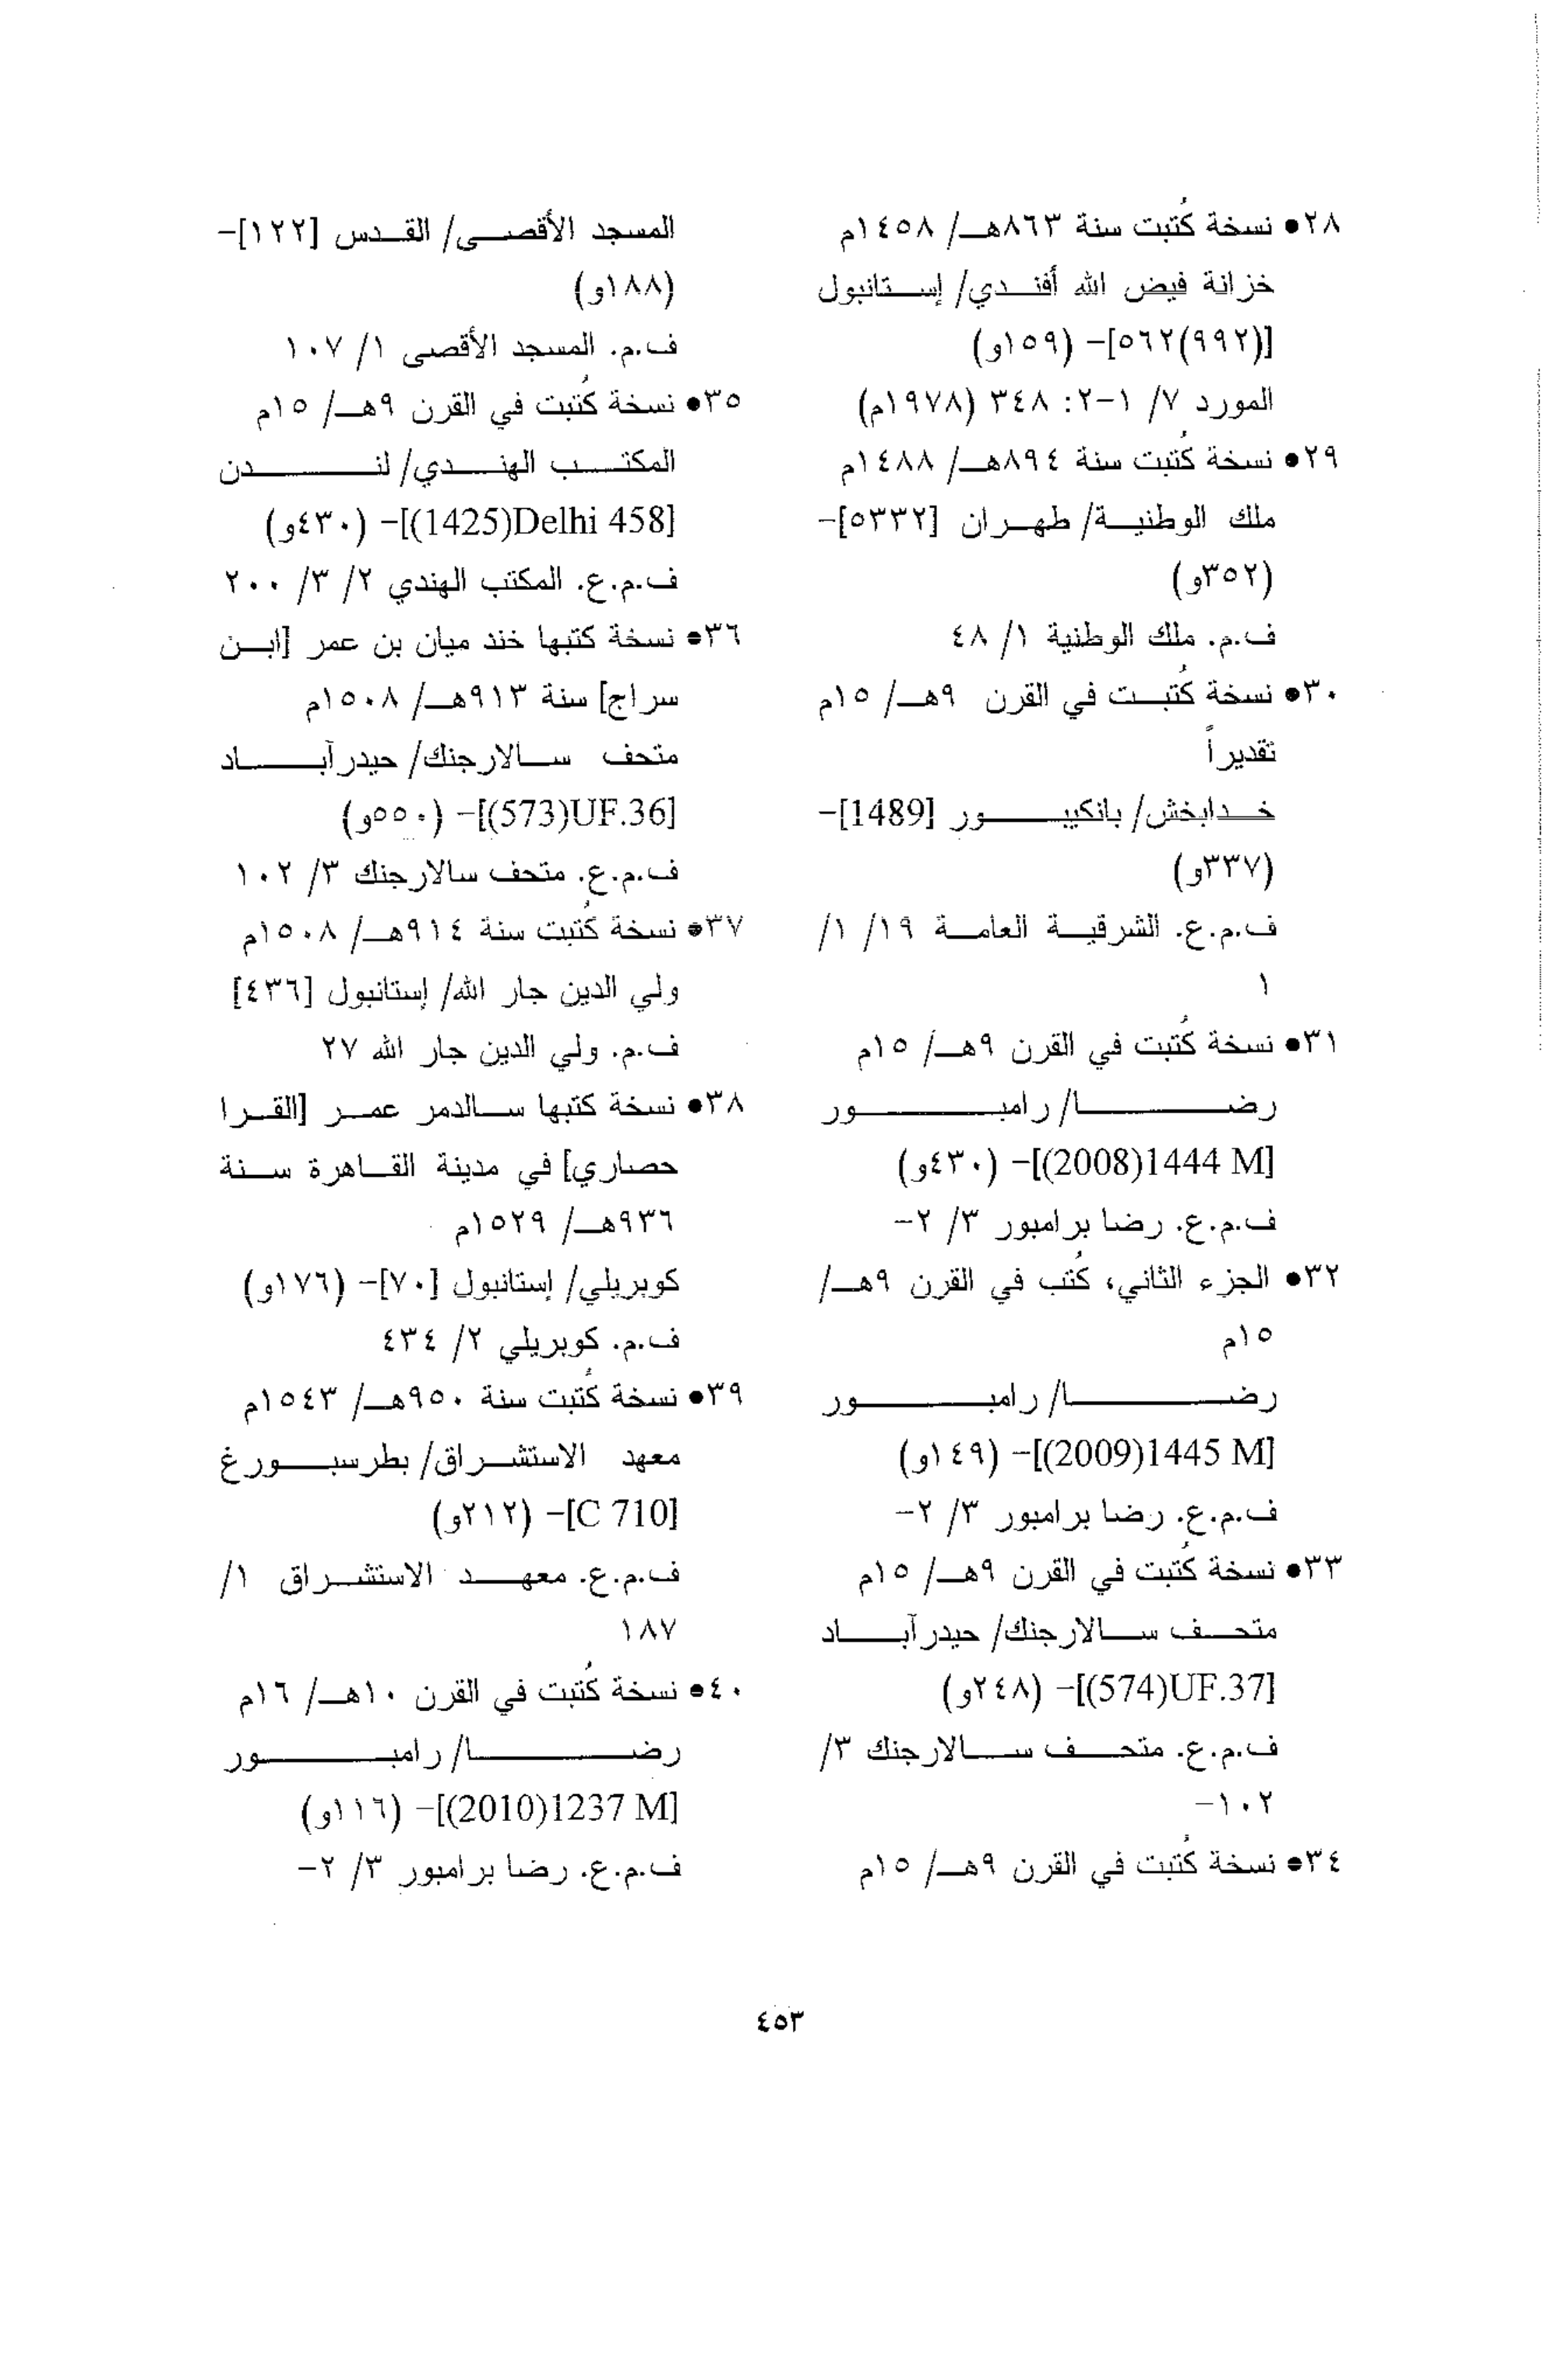 ٢٨● نسخة كُتبت سنة ٨٦٣هـ/ ١٤٥٨م
خزانة فيض الله أفندي/ إستانبول
[(٩٩٢)٥٦٢]- (١٥٩و)
المورد ٧/ ١-٢: ٣٤٨ (١٩٧٨م)
٢٩● نسخة كُتبت سنة ٨٩٤هـ/ ١٤٨٨م
ملك الوطنية/ طهران [٥٣٣٢]-
(٣٥٢و)
ف.م. ملك الوطنية ١/ ٤٨
٣٠● نسخة كُتبت في القرن ٩هـ/ ١٥م
تقديراً
خدابخش/ بانكيبور [1489]-
(٣٣٧و)
ف.م.ع. الشرقية العامة ١٩/ ١/
١
٣١● نسخة كُتبت في القرن ٩هـ/ ١٥م
رضا/ رامبور
[(2008)1444 M]- (٤٣٠و)
ف.م.ع. رضا برامبور ٣/ ٢-
٣٢● الجزء الثاني، كُتب في القرن ٩هـ/
١٥م
رضا/ رامبور
[(2009)1445 M]- (١٤٩و)
ف.م.ع. رضا برامبور ٣/ ٢-
٣٣● نسخة كُتبت في القرن ٩هـ/ ١٥م
متحف سالارجنك/ حيدرآباد
[(574)UF.37]- (٢٤٨و)
ف.م.ع. متحف سالارجنك ٣/
١٠٢-
٣٤● نسخة كُتبت في القرن ٩هـ/ ١٥م
المسجد الأقصى/ القدس [١٢٢]-
(١٨٨و)
ف.م. المسجد الأقصى ١/ ١٠٧
٣٥● نسخة كُتبت في القرن ٩هـ/ ١٥م
المكتب الهندي/ لندن
[(1425)Delhi 458]- (٤٣٠و)
ف.م.ع. المكتب الهندي ٢/ ٣/ ٢٠٠
٣٦● نسخة كتبها خند ميان بن عمر [ابن
سراج] سنة ٩١٣هـ/ ١٥٠٨م
متحف سالارجنك/ حيدرآباد
[(573)UF.36]- (٥٥٠و)
ف.م.ع. متحف سالارجنك ٣/ ١٠٢
٣٧● نسخة كُتبت سنة ٩١٤هـ/ ١٥٠٨م
ولي الدين جار الله/ إستانبول [٤٣٦]
ف.م. ولي الدين جار الله ٢٧
٣٨● نسخة كتبها سالدمر عمر [القرا
حصاري] في مدينة القاهرة سنة
٩٣٦هـ/ ١٥٢٩م
كوبريلي/ إستانبول [٧٠]- (١٧٦و)
ف.م. كوبريلي ٢/ ٤٣٤
٣٩● نسخة كُتبت سنة ٩٥٠هـ/ ١٥٤٣م
معهد الاستشراق/ بطرسبورغ
[C 710]- (٢١٢و)
ف.م.ع. معهد الاستشراق ١/
١٨٧
٤٠● نسخة كُتبت في القرن ١٠هـ/ ١٦م
رضا/ رامبور
[(2010)1237 M]- (١١٦و)
ف.م.ع. رضا برامبور ٣/ ٢-
٤٥٣